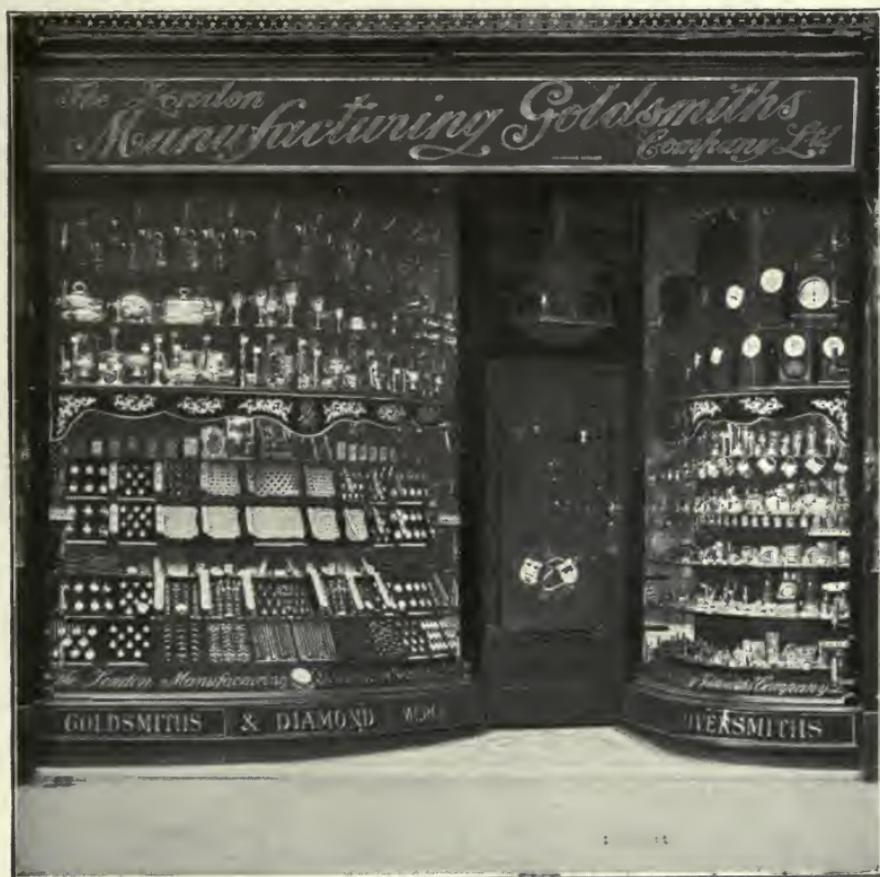 The London
Manufacturing Goldsmiths
Company Ltd.
The London Manufacturing
Company
GOLDSMITHS & DIAMOND